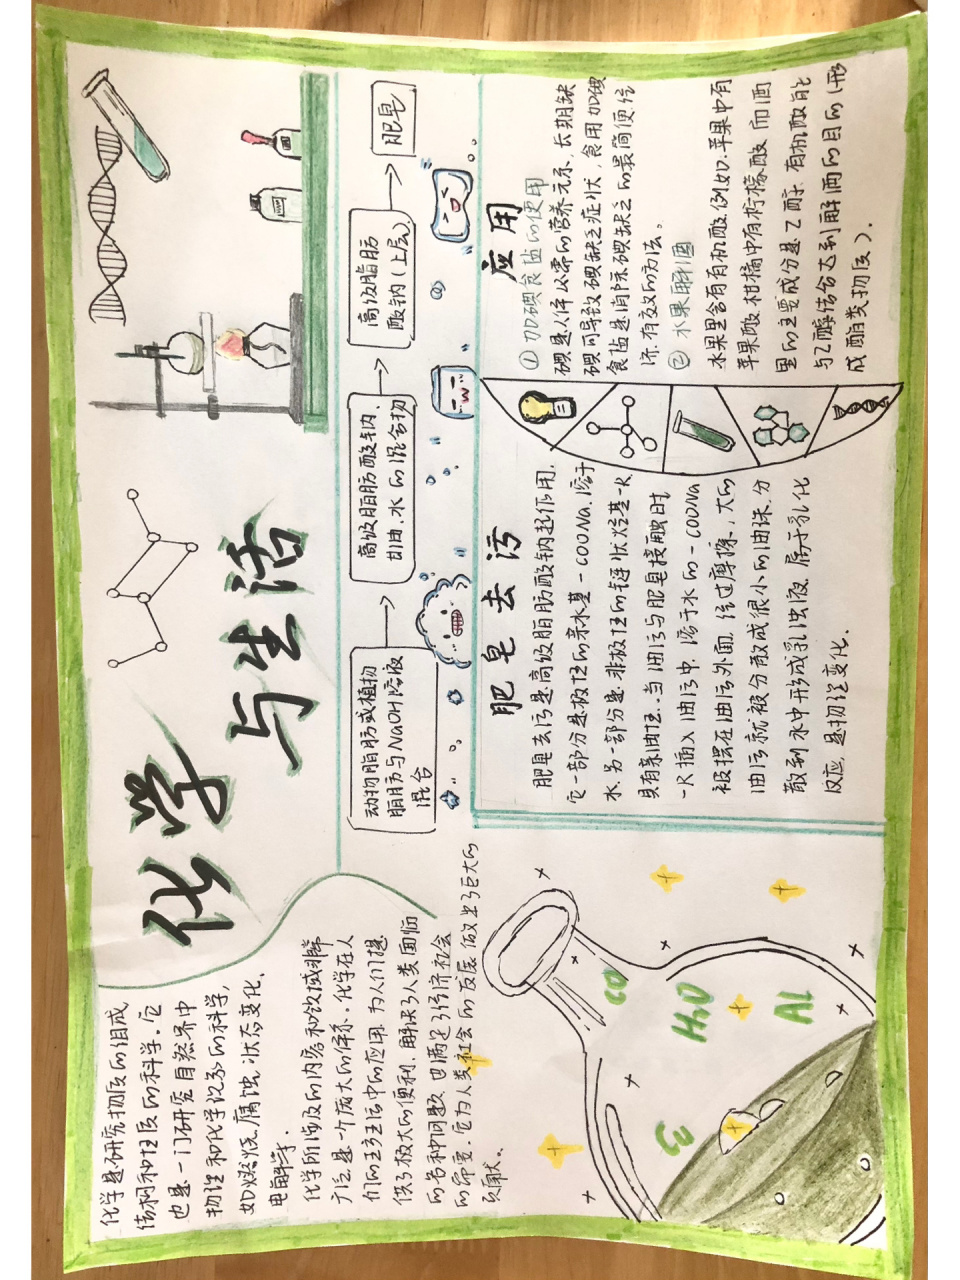 化学与生活
化学是研究物质的组成
结构和性质的科学.它
也是一门研究自然界中
物性和化学现象的科学,
如燃烧.腐蚀.状态变化.
电解等.
化学所涉及的内容和领域非常
广泛是一个庞大的体系.化学在人
们的生活中的应用.为人们提
供了极大的便利.解决了人类面临
的各种问题.也满足了经济社会
的需要.它为人类社会的发展做出了巨大的
贡献.
动物脂肪或植物
脂肪与NaOH溶液
混合
高级脂肪酸钠.
甘油.水的混合物
高级脂脂肪
酸钠(上层)
肥皂
肥皂去污
肥皂去污是高级脂肪酸钠起作用.
它一部分是极性的亲水基-COONa.溶于
水.另一部分是非极性的链状烃基-R
具有亲油性.当油污与肥皂接触时
-R插入油污中.溶于水的-COONa
被摆在油污外面.经过摩擦,大的
油污就被分散成很小的油珠.分
散到水中形成乳浊液.属于乳化
反应.是物理变化.
应用
①加碘食盐的使用
碘是人体必需的营养元素.长期缺
碘可导致碘缺乏症状,食用加碘
食盐是消除碘缺乏的最简便经
济.有效的方法。
②水果解酒
水果里含有有机酸.例如.苹果中有
苹果酸.柑橘中有柠檬酸.而酒
里的主要成分是乙醇.有机酸能
与乙醇结合达到解酒的目的(形
成酯类物质).
CO
H₂O
Al
C